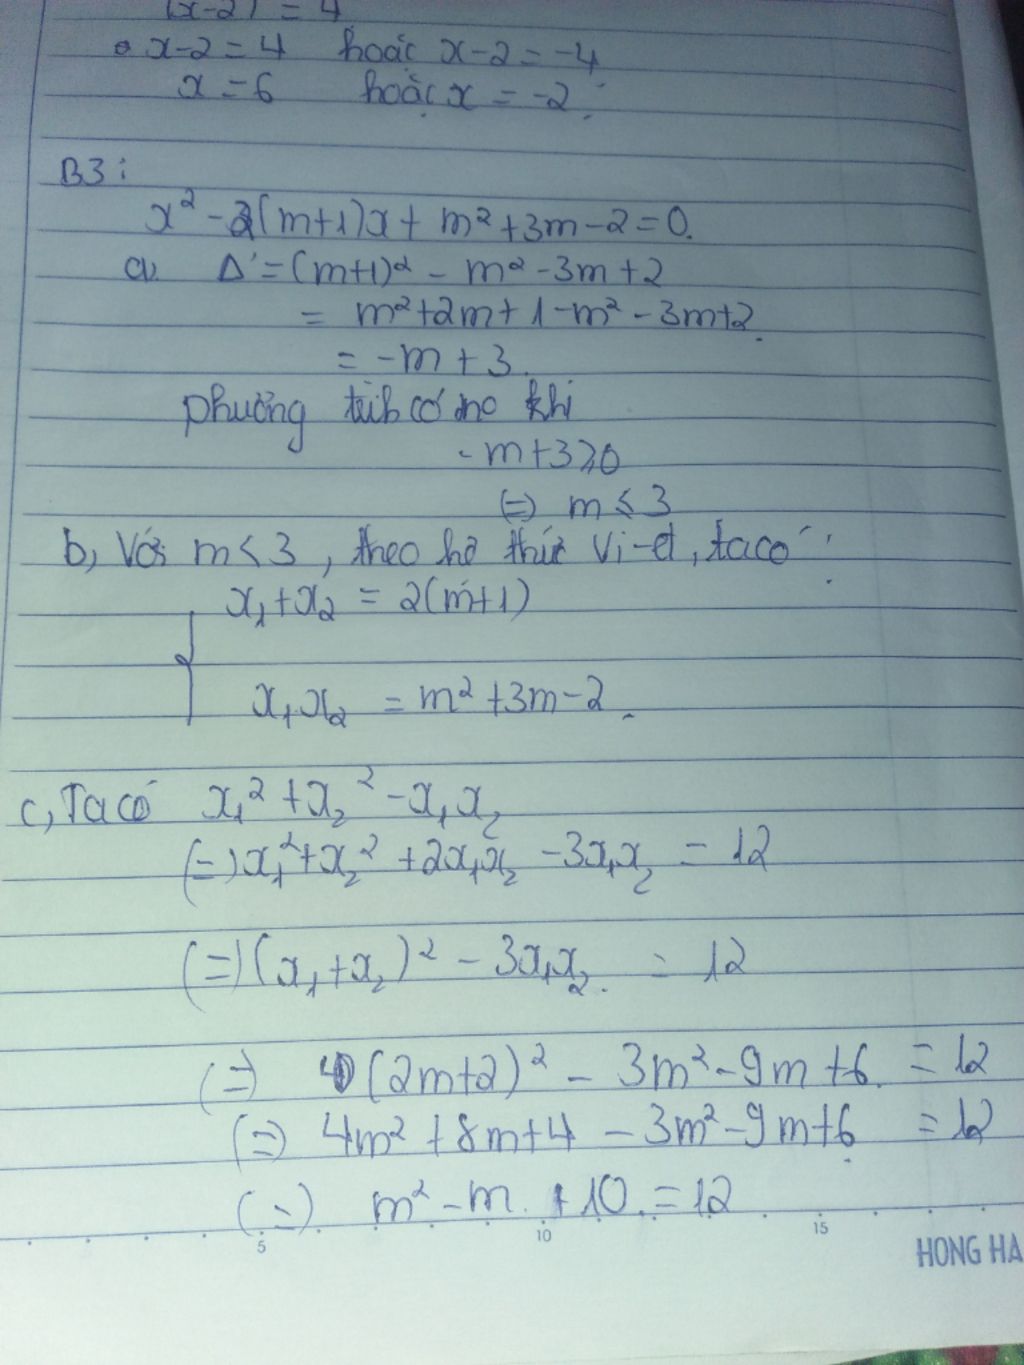 (x-2) = 4
x-2 = 4 hoặc x-2 = -4
x = 6 hoặc x = -2
B3:
x² - 2(m+1)x + m² + 3m - 2 = 0.
a, Δ' = (m+1)² - m² - 3m + 2
= m² + 2m + 1 - m² - 3m + 2
= -m + 3.
phương trình có no khi
-m + 3 ≥ 0
(=) m ≤ 3
b, Với m < 3, theo hệ thức Vi-et, ta có:
x₁ + x₂ = 2(m+1)
x₁x₂ = m² + 3m - 2.
c, Ta có x₁² + x₂² - x₁x₂
(=) x₁² + x₂² + 2x₁x₂ - 3x₁x₂ = 12
(=) (x₁ + x₂)² - 3x₁x₂ = 12
(=) (2m+2)² - 3m² - 9m + 6 = 12
(=) 4m² + 8m + 4 - 3m² - 9m + 6 = 12
(=) m² - m + 10 = 12
5 10 15
HONG HA